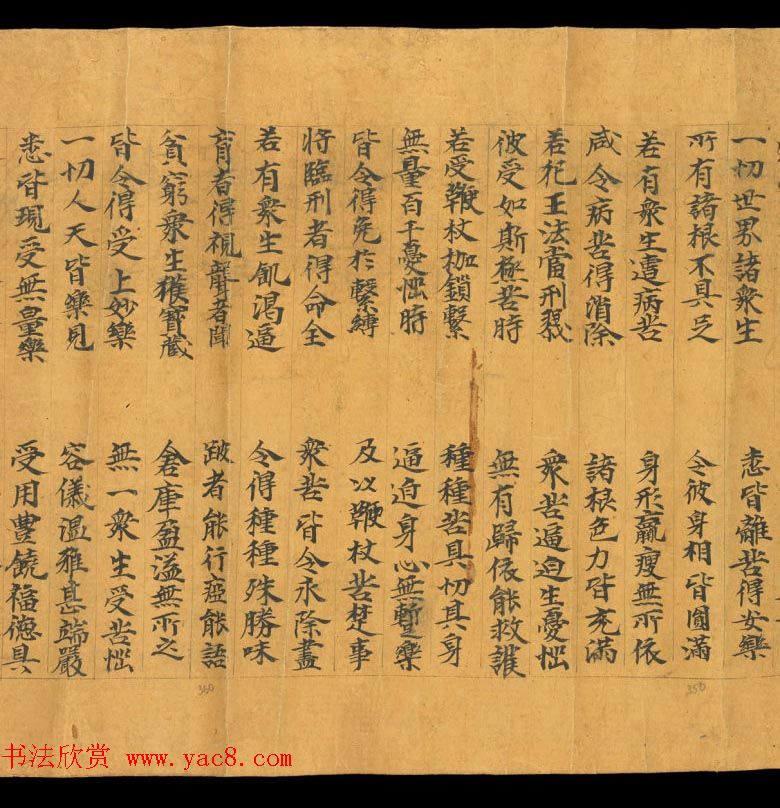 一切世界諸衆生　悉皆離苦得安樂
所有諸根不具足　令彼身相皆圓滿
若有衆生遭病苦　身形羸瘦無所依
咸令病苦得消除　諸根色力皆充滿
若犯王法當刑戮　衆苦逼迫生憂惱
彼受如斯極苦時　無有歸依能救護
若受鞭杖枷鎖繫　種種苦具切其身
無量百千憂惱時　逼迫身心無暫樂
皆令得免於繫縛　及以鞭杖苦楚事
將臨刑者得命全　衆苦皆令永除盡
若有衆生飢渴逼　令得種種殊勝味
盲者得視聾者聞　跛者能行瘂能語
貧窮衆生獲寶藏　倉庫盈溢無所乏
皆令得受上妙樂　無一衆生受苦惱
一切人天皆樂見　容儀溫雅甚端嚴
悉皆現受無量樂　受用豐饒福德具
360
350
书法欣赏 www.yac8.com